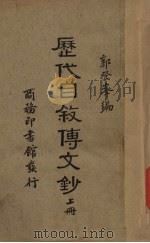 郭登峯編
歷代自敘傳文鈔
上冊
商務印書館發行